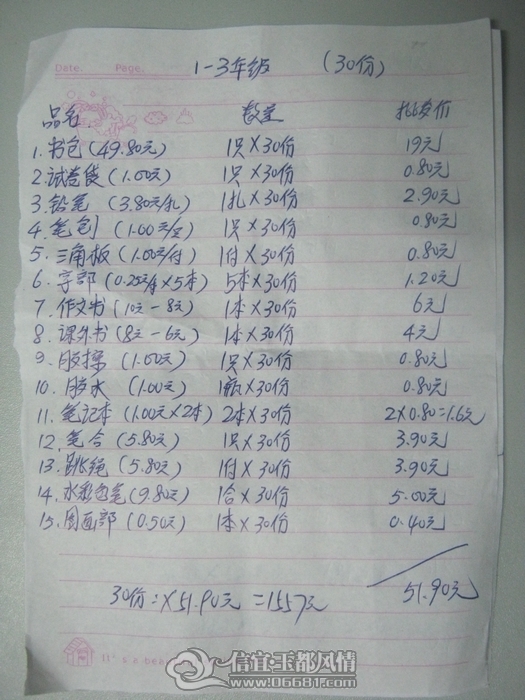 Date. Page.
1-3年级 (30份)
品名 数量 批发价
1. 书包 (49.80元) 1只×30份 19元
2. 试卷袋 (1.00元) 1只×30份 0.80元
3. 铅笔 (3.80元/扎) 1扎×30份 2.90元
4. 笔刨 (1.00元/只) 1只×30份 0.80元
5. 三角板 (1.00元/付) 1付×30份 0.80元
6. 字部 (0.25元/本×5本) 5本×30份 1.20元
7. 作文书 (10元-8元) 1本×30份 6元
8. 课外书 (8元-6元) 1本×30份 4元
9. 胶擦 (1.00元) 1只×30份 0.80元
10. 胶水 (1.00元) 1瓶×30份 0.80元
11. 笔记本 (1.00元×2本) 2本×30份 2×0.80=1.6元
12. 笔合 (5.80元) 1只×30份 3.90元
13. 跳绳 (5.80元) 1付×30份 3.90元
14. 水彩色笔 (9.80元) 1合×30份 5.00元
15. 图画部 (0.50元) 1本×30份 0.40元
51.90元
30份: ×51.90元 =1557元
It's a beh
信宜玉都风情
www.06681.com